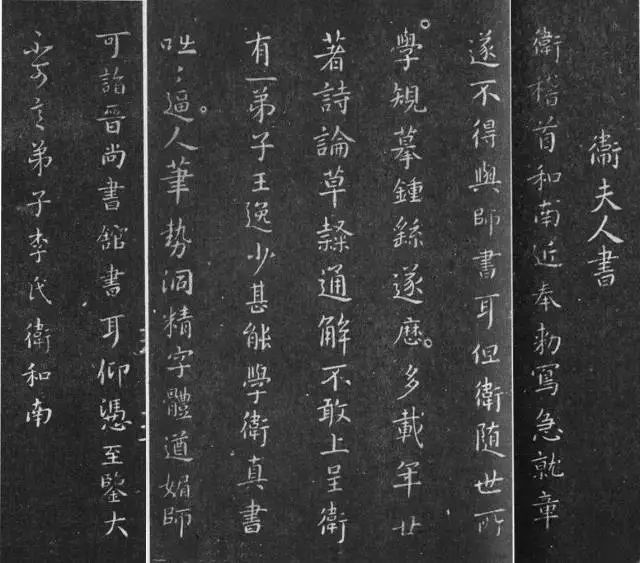 衞夫人書
衛稽首和南近奉勑寫急就章
遂不得與師書耳但衛隨世所
學規摹鍾繇遂歷多載年廿
著詩論草隸通解不敢上呈衛
有一弟子王逸少甚能學衛真書
咄〻逼人筆勢洞精字體遒媚師
可詣晉尚書館書耳仰憑至鑒大
不可言弟子李氏衛和南